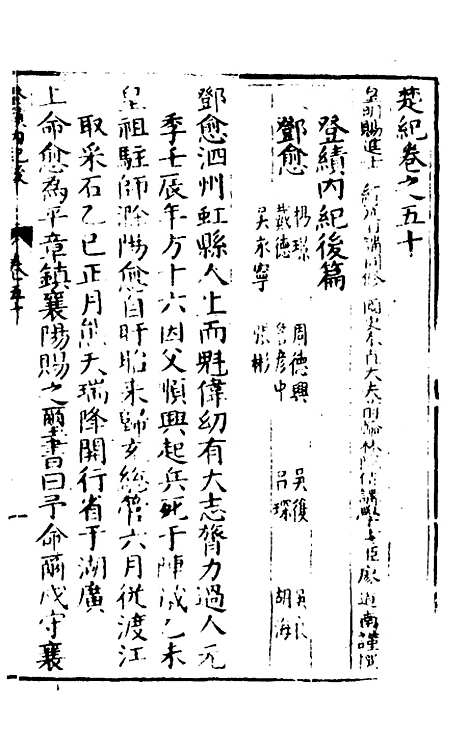 楚紀卷之五十
皇明賜進士 經筵 國史 大夫 翰林院侍講學士臣廖道南謹撰
登績內紀後篇
鄧愈 楊璟 周德興 吳復
戴德 詹彥中 呂琛 胡海
吳永寧 張彬
鄧愈泗州虹縣人上而魁偉幼有大志膂力過人元
季壬辰年方十六因父順興起兵死于陣歲乙未
皇祖駐師滁陽愈自盱眙來歸充總管六月從渡江
取采石乙巳正月熊天瑞降開行省于湖廣
上命愈為平章鎮襄陽賜之璽書曰予命爾戍守襄